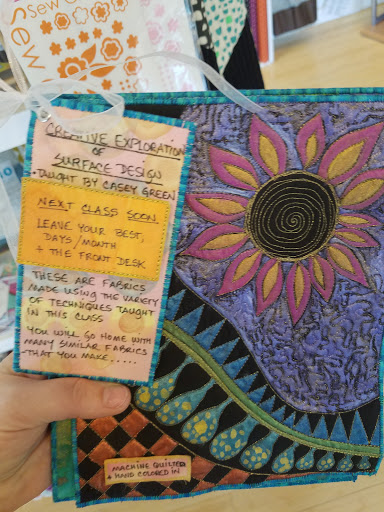 Sew
sew
CREATIVE EXPLORATION
OF
SURFACE DESIGN
•TAUGHT BY CASEY GREEN
NEXT CLASS SOON.
LEAVE YOUR BEST,
DAYS/MONTH
+ THE FRONT DESK
THESE ARE FABRICS
MADE USING THE VARIETY
OF TECHNIQUES TAUGHT
IN THIS CLASS
YOU WILL GO HOME WITH
MANY SIMILAR FABRICS
-THAT YOU MAKE.....
MACHINE QUILTED
+ HAND COLORED IN